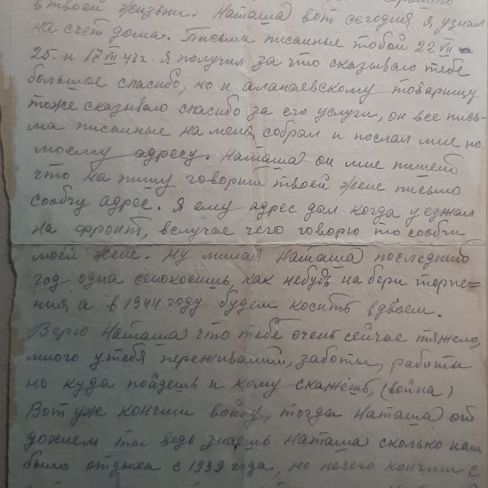 в твоей жизни. Наташа вот сегодня я узнал
на счёт дома. Письма писанные тобой 22 VII
25. и 17 VII 43г. я получил за что сказываю тебе
большое спасибо, но и алапаевскому товарищу
тоже сказываю спасибо за его услуги, он все пись-
ма писанные на меня собрал и послал мне по
моему адресу. Наташа он мне пишет
что напишу говорит твоей жене письмо
сообчу адрес. Я ему адрес дал когда уезжал
на фронт, вслучае чего говорю то сообчи
моей жене. Ну милая Наташа последний
год одна сенокосишь, как нибудь наберись терпе-
ния а в 1944 году будем косить вдвоём.
Верю Наташа что тебе очень сейчас тяжело,
много у тебя переживаний, заботы, работы
но куда пойдешь и кому скажешь, (война)
Вот уже кончим войну, тогда Наташа от
дохнем ты ведь знаешь Наташа сколько нам
было отдыха с 1939 года, но нечего кончим с